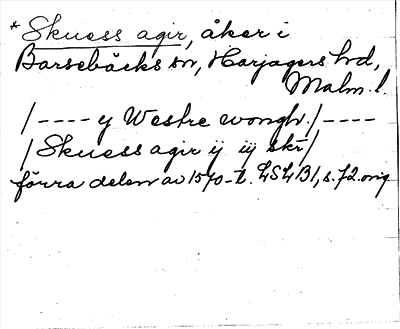 *Skuess agir, åker i
Barsebäcks sn, Harjagers hd,
Malm. l.
/---- y Westre wongh./----
/Skuess agir ij iij skr/
förra delen av 1570-t. LSLB1, s. 72. orig